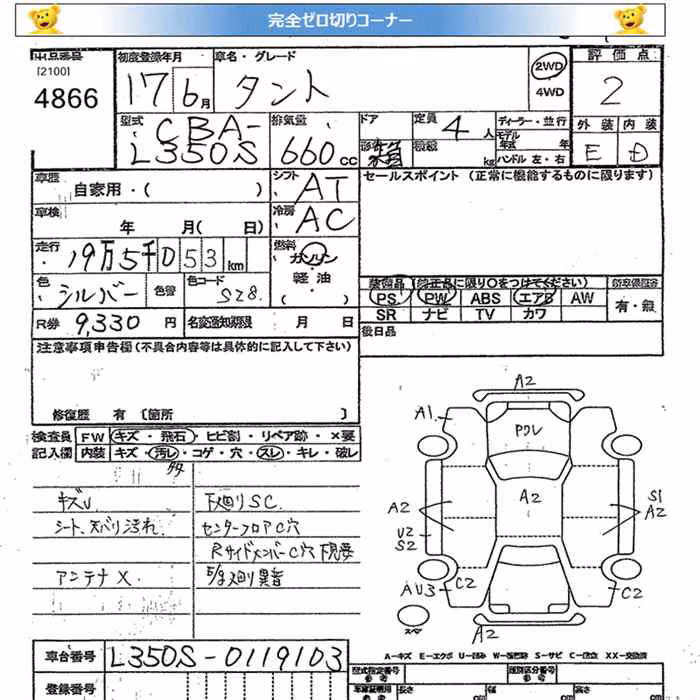 完全ゼロ切りコーナー
出品番号
[2100]
4866
初度登録年月
17年6月
車名・グレード
タント
2WD
4WD
評価点
2
型式
CBA-
L350S
排気量
660cc
ドア
形状
定員
4人
積載
kg
ディーラー・並行
モデル
年式 年
ハンドル 左・右
外装 内装
E D
車歴
自家用・( )
シフト
AT
セールスポイント(正常に機能するものに限ります)
車検
年 月(日)
冷房
AC
走行
19万5千053km
燃料
ガソリン
軽油
( )
色
シルバー
色替
色コード
S28
装備品(純正品に限り○をつけてください)
PS PW ABS エアB AW
SR ナビ TV カワ
有・無
R券 9,330円
名変通知期限 月 日
後日品
注意事項申告欄(不具合内容等は具体的に記入して下さい)
修復歴 有[箇所 ]
検査員
記入欄
FW キズ・飛石・ヒビ割・リペア跡・×要
内装 キズ・汚レ・コゲ・穴・スレ・キレ・破レ
キズU
シート、天バリ汚れ
アンテナ×
下廻りSC
センターフロアC穴
RサイドメンバーC穴 下見要
異音
A2
A1
Pクレ
A2
A2
S1
A2
U2
S2
AU3 C2
C2
スペア
A2
A-キズ E-エクボ U-凹み W-板金波 S-サビ C-腐食 XX-交換済
車台番号 L350S-0119103
登録番号
型式指定番号
類別区分番号
長さ cm
幅 cm
高さ cm